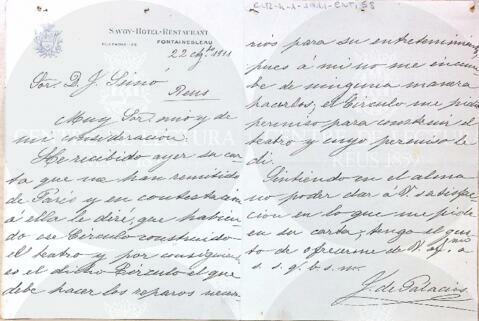 SAVOY-HOTEL-RESTAURANT
FONTAINEBLEAU
1911
Sor. D. J. Simó
Reus
Muy Sor. mio y de
mi consideración
He recibido ayer su car
ta que me han remitido
de Paris y en contestacion
á ella le diré, que habien
do ese Círculo construido
el teatro y por consiguien
es el dicho Círculo el que
debe hacer los reparos nece
rios para su entretenimiento
pues á mi no me incum
be de ninguna manera
hacerlos, el Círculo me pidió
permiso para construir el
teatro y cuyo permiso le
di.
Sintiendo en el alma
no poder dar á V. satisfac
cion en lo que me pide
en su carta, tengo el gus
to de ofrecerme de V.
s. s. q. b. s. m.
J. de Palacios